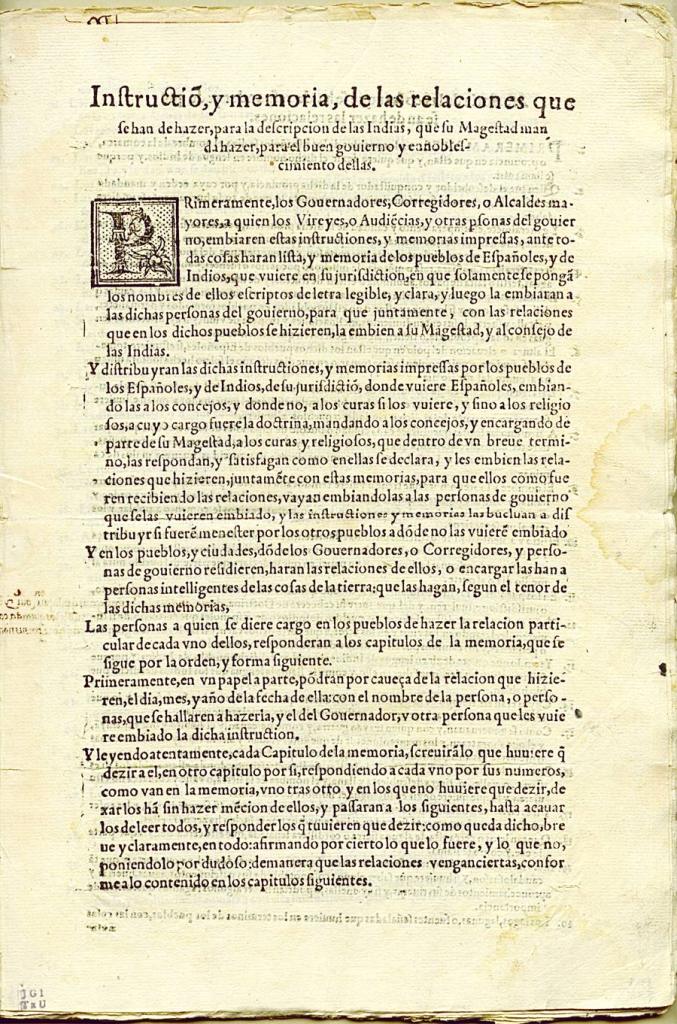 Instructiõ, y memoria, de las relaciones que
se han de hazer, para la descripcion de las Indias, que su Magestad man
da hazer, para el buen gouierno y ennobles-
cimiento dellas.
PRimeramente, los Gouernadores, Corregidores, o Alcaldes ma-
yores, a quien los Vireyes, o Audiẽcias, y otras psonas del gouier
no, embiaren estas instructiones, y memorias impressas, ante to-
das cosas haran lista, y memoria de los pueblos de Españoles, y de
Indios, que vuiere en su jurisdiction, en que solamente se pongã
los nombres de ellos escriptos de letra legible, y clara, y luego la embiaran a
las dichas personas del gouierno, para que juntamente, con las relaciones
que en los dichos pueblos se hizieren, la embien a su Magestad, y al consejo de
las Indias.
Y distribuyran las dichas instructiones, y memorias impressas por los pueblos de
los Españoles, y de Indios, de su jurisdictiõ, donde vuiere Españoles, embian-
do las a los concejos, y donde no, a los curas si los vuiere, y sino a los religio
sos, a cuyo cargo fuere la doctrina, mandando a los concejos, y encargando de
parte de su Magestad, a los curas y religiosos, que dentro de vn breue termi-
no, las respondan, y satisfagan como en ellas se declara, y les embien las rela-
ciones que hizieren, juntamẽte con estas memorias, para que ellos como fue
ren recibiendo las relaciones, vayan embiandolas a las personas de gouierno
que se las vuieren embiado, y las instructiones y memorias las bueluan a dis
tribuyr si fuerẽ menester por los otros pueblos a dõde no las vuierẽ embiado
Y en los pueblos, y ciudades, dõde los Gouernadores, o Corregidores, y perso-
nas de gouierno residieren, haran las relaciones de ellos, o encargar las han a
personas intelligentes de las cosas de la tierra: que las hagan, segun el tenor de
las dichas memorias,
Las personas a quien se diere cargo en los pueblos de hazer la relacion parti-
cular de cada vno dellos, responderan a los capitulos de la memoria, que se
sigue por la orden, y forma siguiente.
Primeramente, en vn papel a parte, põdran por caueça de la relacion que hizie-
ren, el dia, mes, y año de la fecha de ella: con el nombre de la persona, o perso-
nas, que se hallaren a hazerla, y el del Gouernador, v otra persona que les vuie
re embiado la dicha instruction.
Y leyendo atentamente, cada Capitulo de la memoria, screuirã lo que huuiere q̃
dezir a el, en otro capitulo por si, respondiendo a cada vno por sus numeros,
como van en la memoria, vno tras otro, y en los que no huuiere que dezir, de
xarlos hã sin hazer mẽcion de ellos, y passaran a los siguientes, hasta acauar
los de leer todos, y responder los q̃ tuuieren que dezir: como queda dicho, bre
ue y claramente, en todo: afirmando por cierto lo que lo fuere, y lo que no,
poniendolo por dudoso: demanera que las relaciones vengan ciertas, confor
me a lo contenido en los capitulos siguientes.
JGI
TxU